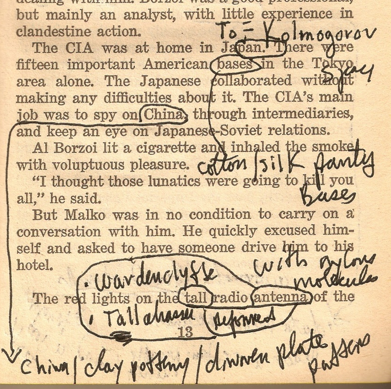 dealing with him. Borzoi was a good professional,
but mainly an analyst, with little experience in
clandestine action.
To = Kolmogorov
The CIA was at home in Japan. There were
fifteen important American bases in the Tokyo
space
area alone. The Japanese collaborated without
making any difficulties about it. The CIA's main
job was to spy on China, through intermediaries,
and keep an eye on Japanese-Soviet relations.
Al Borzoi lit a cigarette and inhaled the smoke
with voluptuous pleasure.
cotton/silk panty
bases
"I thought those lunatics were going to kill you
all," he said.
But Malko was in no condition to carry on a
conversation with him. He quickly excused him-
self and asked to have someone drive him to his
hotel.
• Wardenclyffe
with nylons
molecules
The red lights on the tall radio antenna of the
• Tallahassee
13
china/clay pottery/ plate